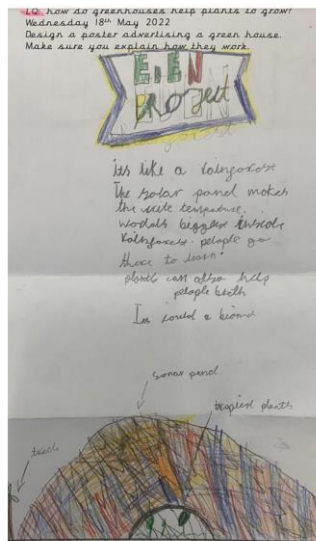 LQ: how do greenhouses help plants to grow?
Wednesday 18th May 2022
Design a poster advertising a green house.
Make sure you explain how they work.
EDEN
project
its like a
The solar panel makes
the
worlds biggest inside
people go
there to learn.
plants can also help
people breth
a
sonar panel
tropical plants
trees